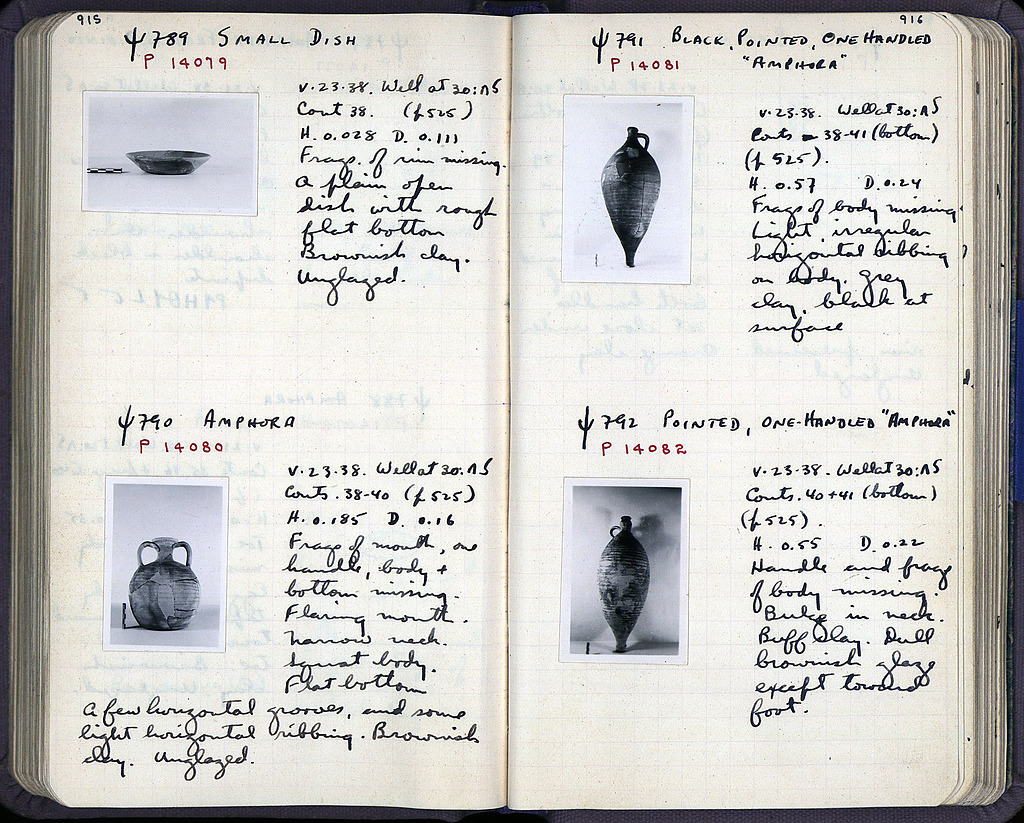 915
ψ789 SMALL DISH
P 14079
V.23.38. Well at 30:ΛS
Cont 38. (p525)
H. 0.028 D. 0.111
Frags. of rim missing.
A plain open
dish with rough
flat bottom
Brownish clay.
Unglazed.
ψ790 AMPHORA
P 14080
V.23.38. Well at 30:ΛS
Conts. 38-40 (p525)
H. 0.185 D. 0.16
Frags of mouth, one
handle, body +
bottom missing.
Flaring mouth.
Narrow neck.
Squat body.
Flat bottom
A few horizontal grooves, and some
light horizontal ribbing. Brownish
clay. Unglazed.
916
ψ791 BLACK, POINTED, ONE HANDLED
"AMPHORA"
P 14081
V.23.38. Well at 30:ΛS
Conts 38-41 (bottom)
(p 525).
H. 0.57 D. 0.24
Frags of body missing.
Light, irregular
horizontal ribbing
on body. Grey
clay, black at
surface
ψ792 POINTED, ONE-HANDLED "AMPHORA"
P 14082
V.23.38. Well at 30:ΛS
Conts. 40+41 (bottom)
(p525).
H. 0.55 D. 0.22
Handle and frags
of body missing.
Bulge in neck.
Buff clay. Dull
brownish glaze
except toward
foot.